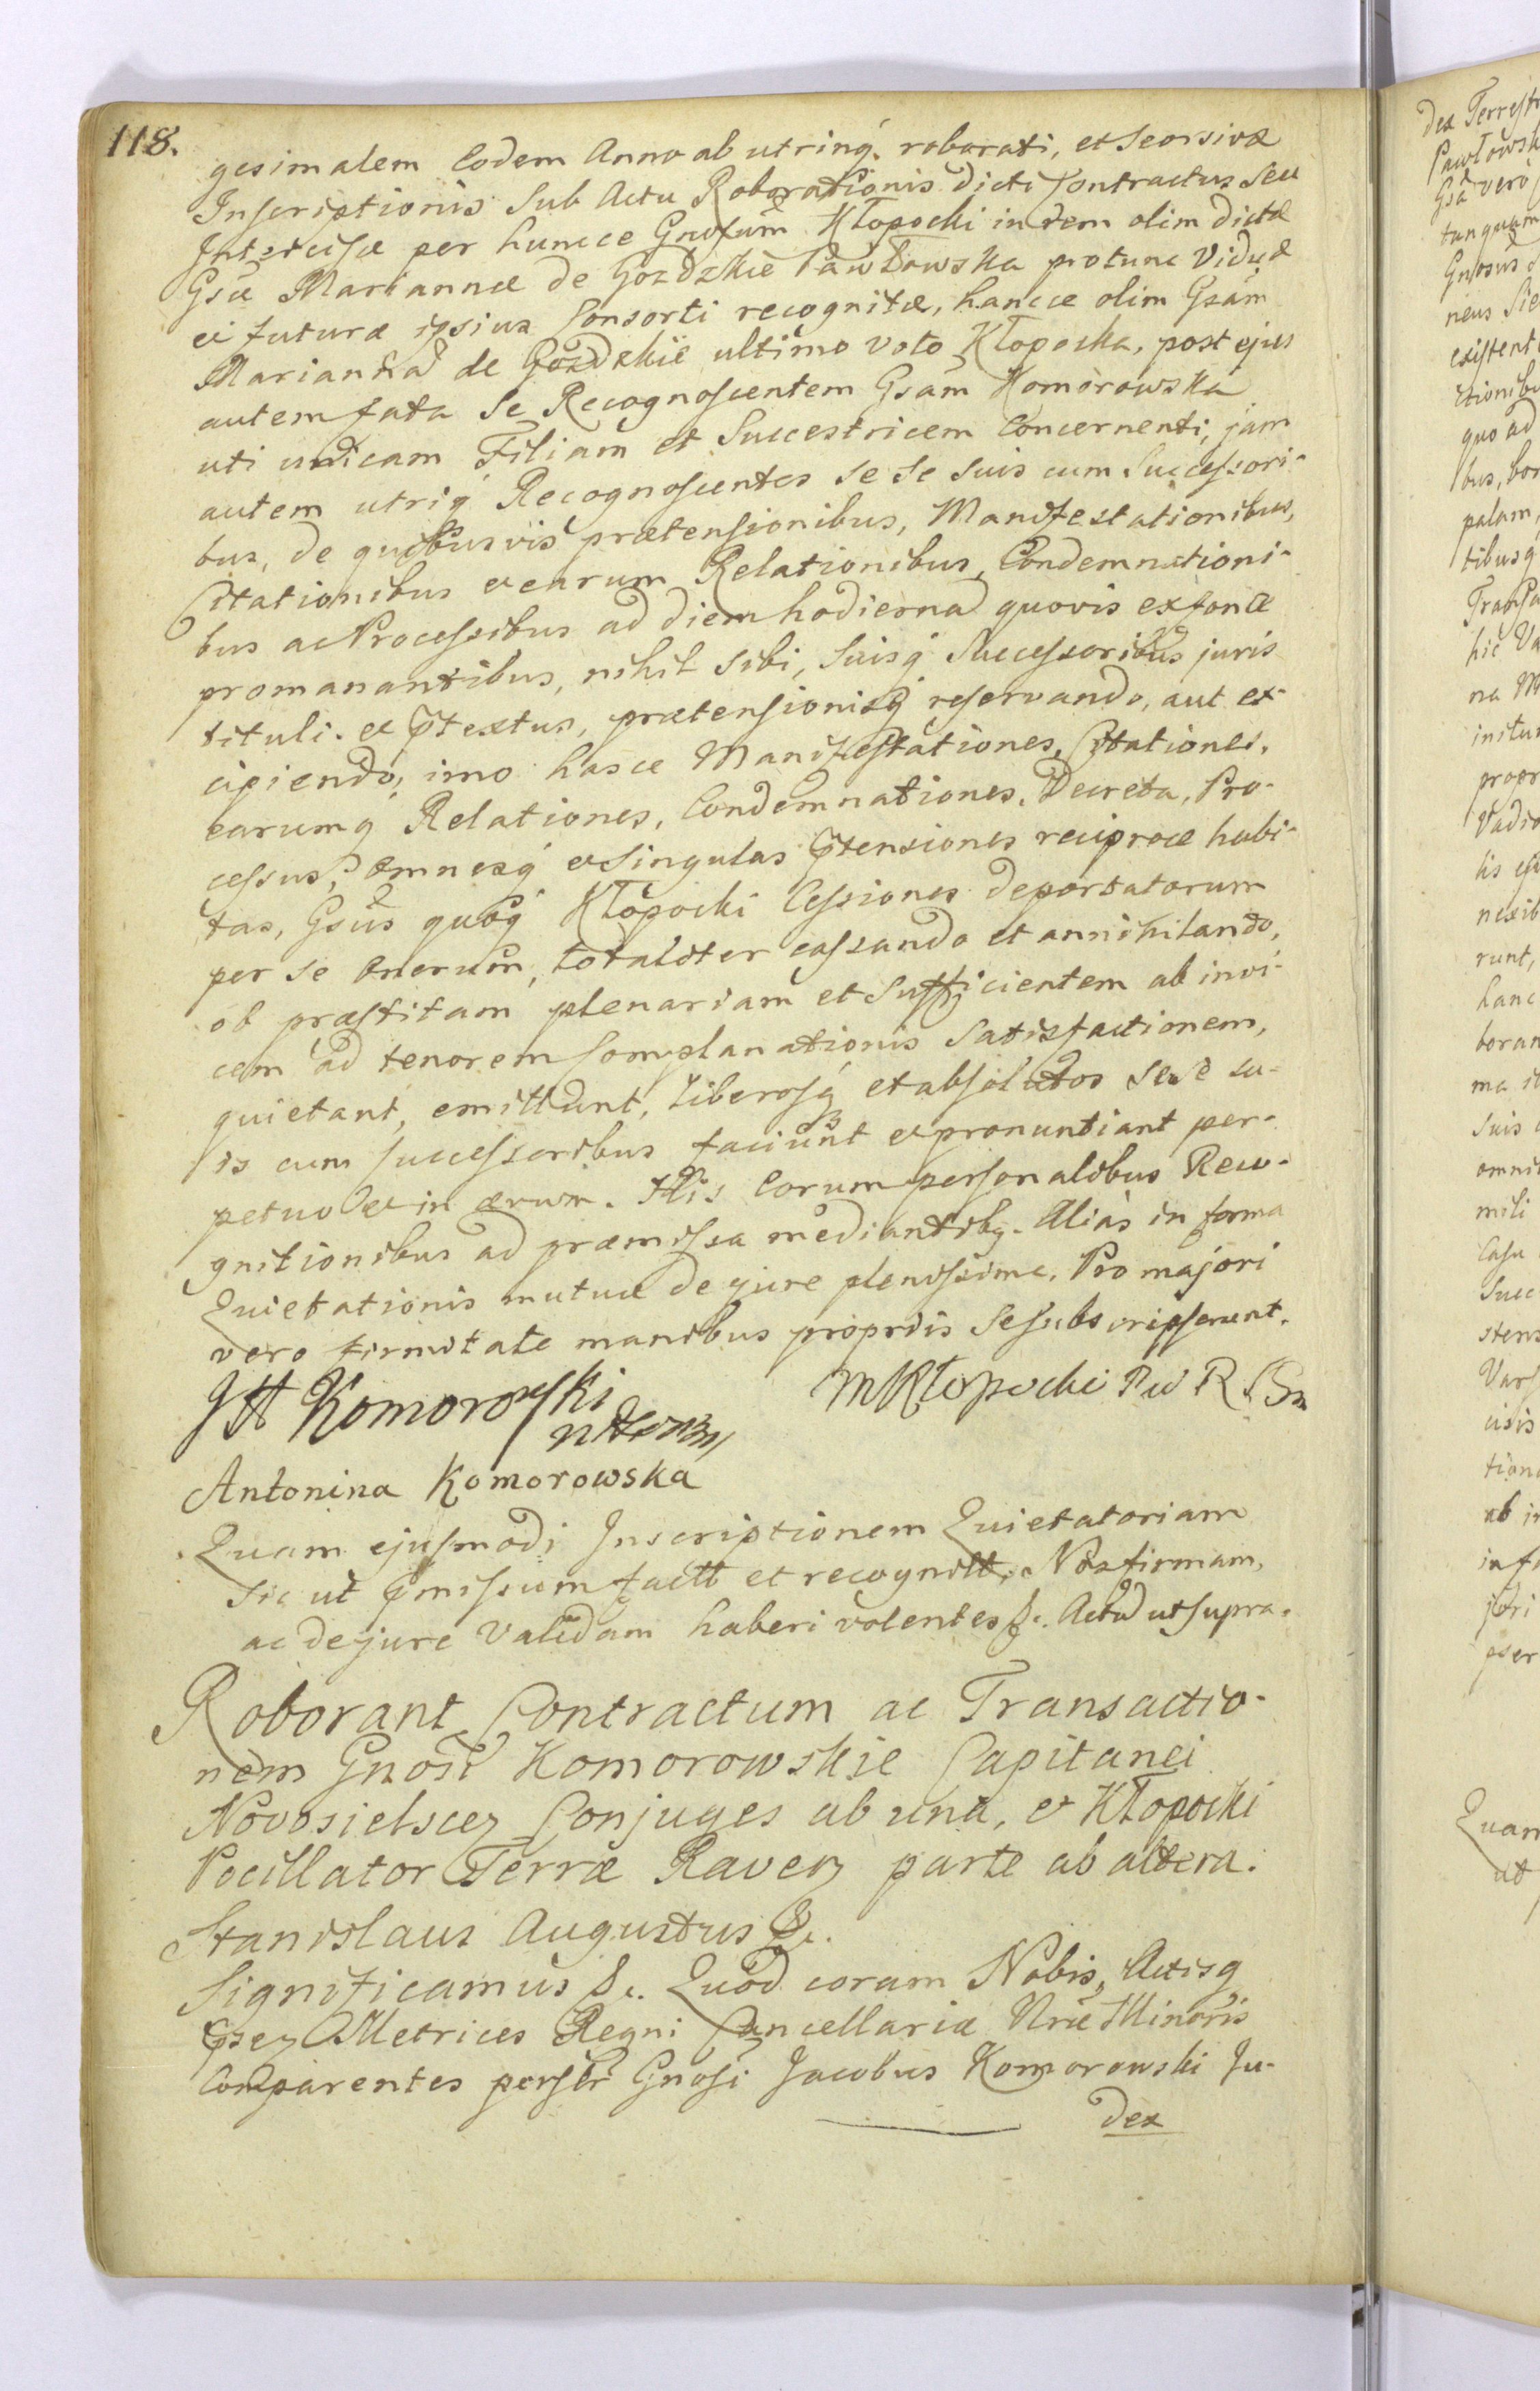 118.
gesimalem Eodem Anno ab utrinq. roborati, et Seorsivæ
Inscriptionis Sub Actu Roborationis dicti Contractus Seu
Intercisæ per huncce Gnosum Kłopocki in rem olim dictæ
Gsæ Mariannæ de Gozdzkie Pawłowska protunc Viduæ
et futuræ ipsius Consorti recognitæ, hancce olim Gsam
Mariannã de Gozdzkie ultimo Voto Kłopocka, post ejus
autem fata Se Recognoscentem Gsam Komorowska
uti unicam Filiam et Successtricem Concernenti, jam
autem utriq Recognoscentes se se suis cum Successori-
bus, de quibusvis prætensionibus, Manifestationibus,
Citationibus et earum Relationibus, Condemnationi-
bus ac Processibus ad diem hodiernã quovis ex fonte
promanantibus, nihil sibi, suisq Successoribus juris
tituli. et p̃textus, prætensionisq reservando, aut ex-
cipiendo, imo hasce Manifestationes, Citationes,
earumq Relationes, Condemnationes, Decreta, Pro-
cessus, omnesq et singulas p̃tensiones reciproce habi-
tas, Gsus quoq Kłopocki Cessiones deportatorum
per se onerum, totaliter cassando et annihilando,
ob præstitam plenariam et sufficientem ab invi-
cem ad tenorem Complanationis Satisfactionem,
quietant, emittunt, liberosq et absolutos sese su-
is cum successoribus faciunt et pronuntiant per-
petuo et in ævum. His Eorum personalibus Reco-
gnitionibus ad præmissa mediantibq. Alias in forma
Quietationis mutuæ de jure plenissima. Pro majori
vero firmitate manibus propriis Sesubscripserunt.
JH Komorowski MKłopocki P W R
Antonina Komorowska
Quam ejusmodi Inscriptionem Quietatoriam
sic ut p̃missum factã et recognitã, Nos firmam,
ac de jure Validam haberi volentes &c. Actũ ut supra.
Roborant Contractum ac Transactio-
nem Gnosi Komorowskie Capitanei
Novosielscen Conjuges ab una, et Kłopocki
Pocillator Terræ Raven parte ab altera.
Stanislaus Augustus &c.
Significamus &c. Quod coram Nobis, Actisq
p̃sen Metrices Regni Cancellariæ Nræ Minoris
Comparentes persłr Gnosi Jacobus Komorowski Ju-
dex
dex Terrestr
Pawłowsk
Gsa vero
tanquam
Gnosus
neus Sie
existent
ctionibu
quo ad
bus, bon
palam,
tibusq
Transa
hic Va
na M
initum
propr
Vadio
lis
nexib
runt,
hanc
boran
ma
Suis
omni
mili
Casu
Succ
stens
Vars
cisis
tiona
ab in
in fo
jori
pser
Quam
ut